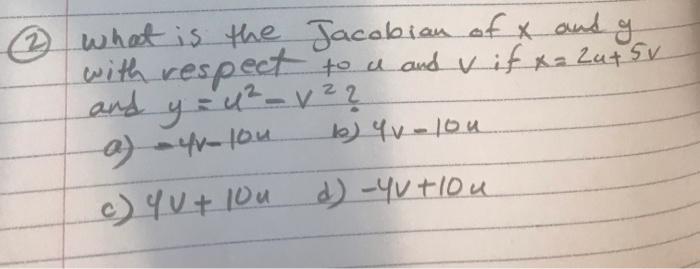 ② what is the Jacobian of x and y
with respect to u and v if x = 2u + 5v
and y = u² - v² ?
a) -4v - 10u b) 4v - 10u
c) 4v + 10u d) -4v + 10u